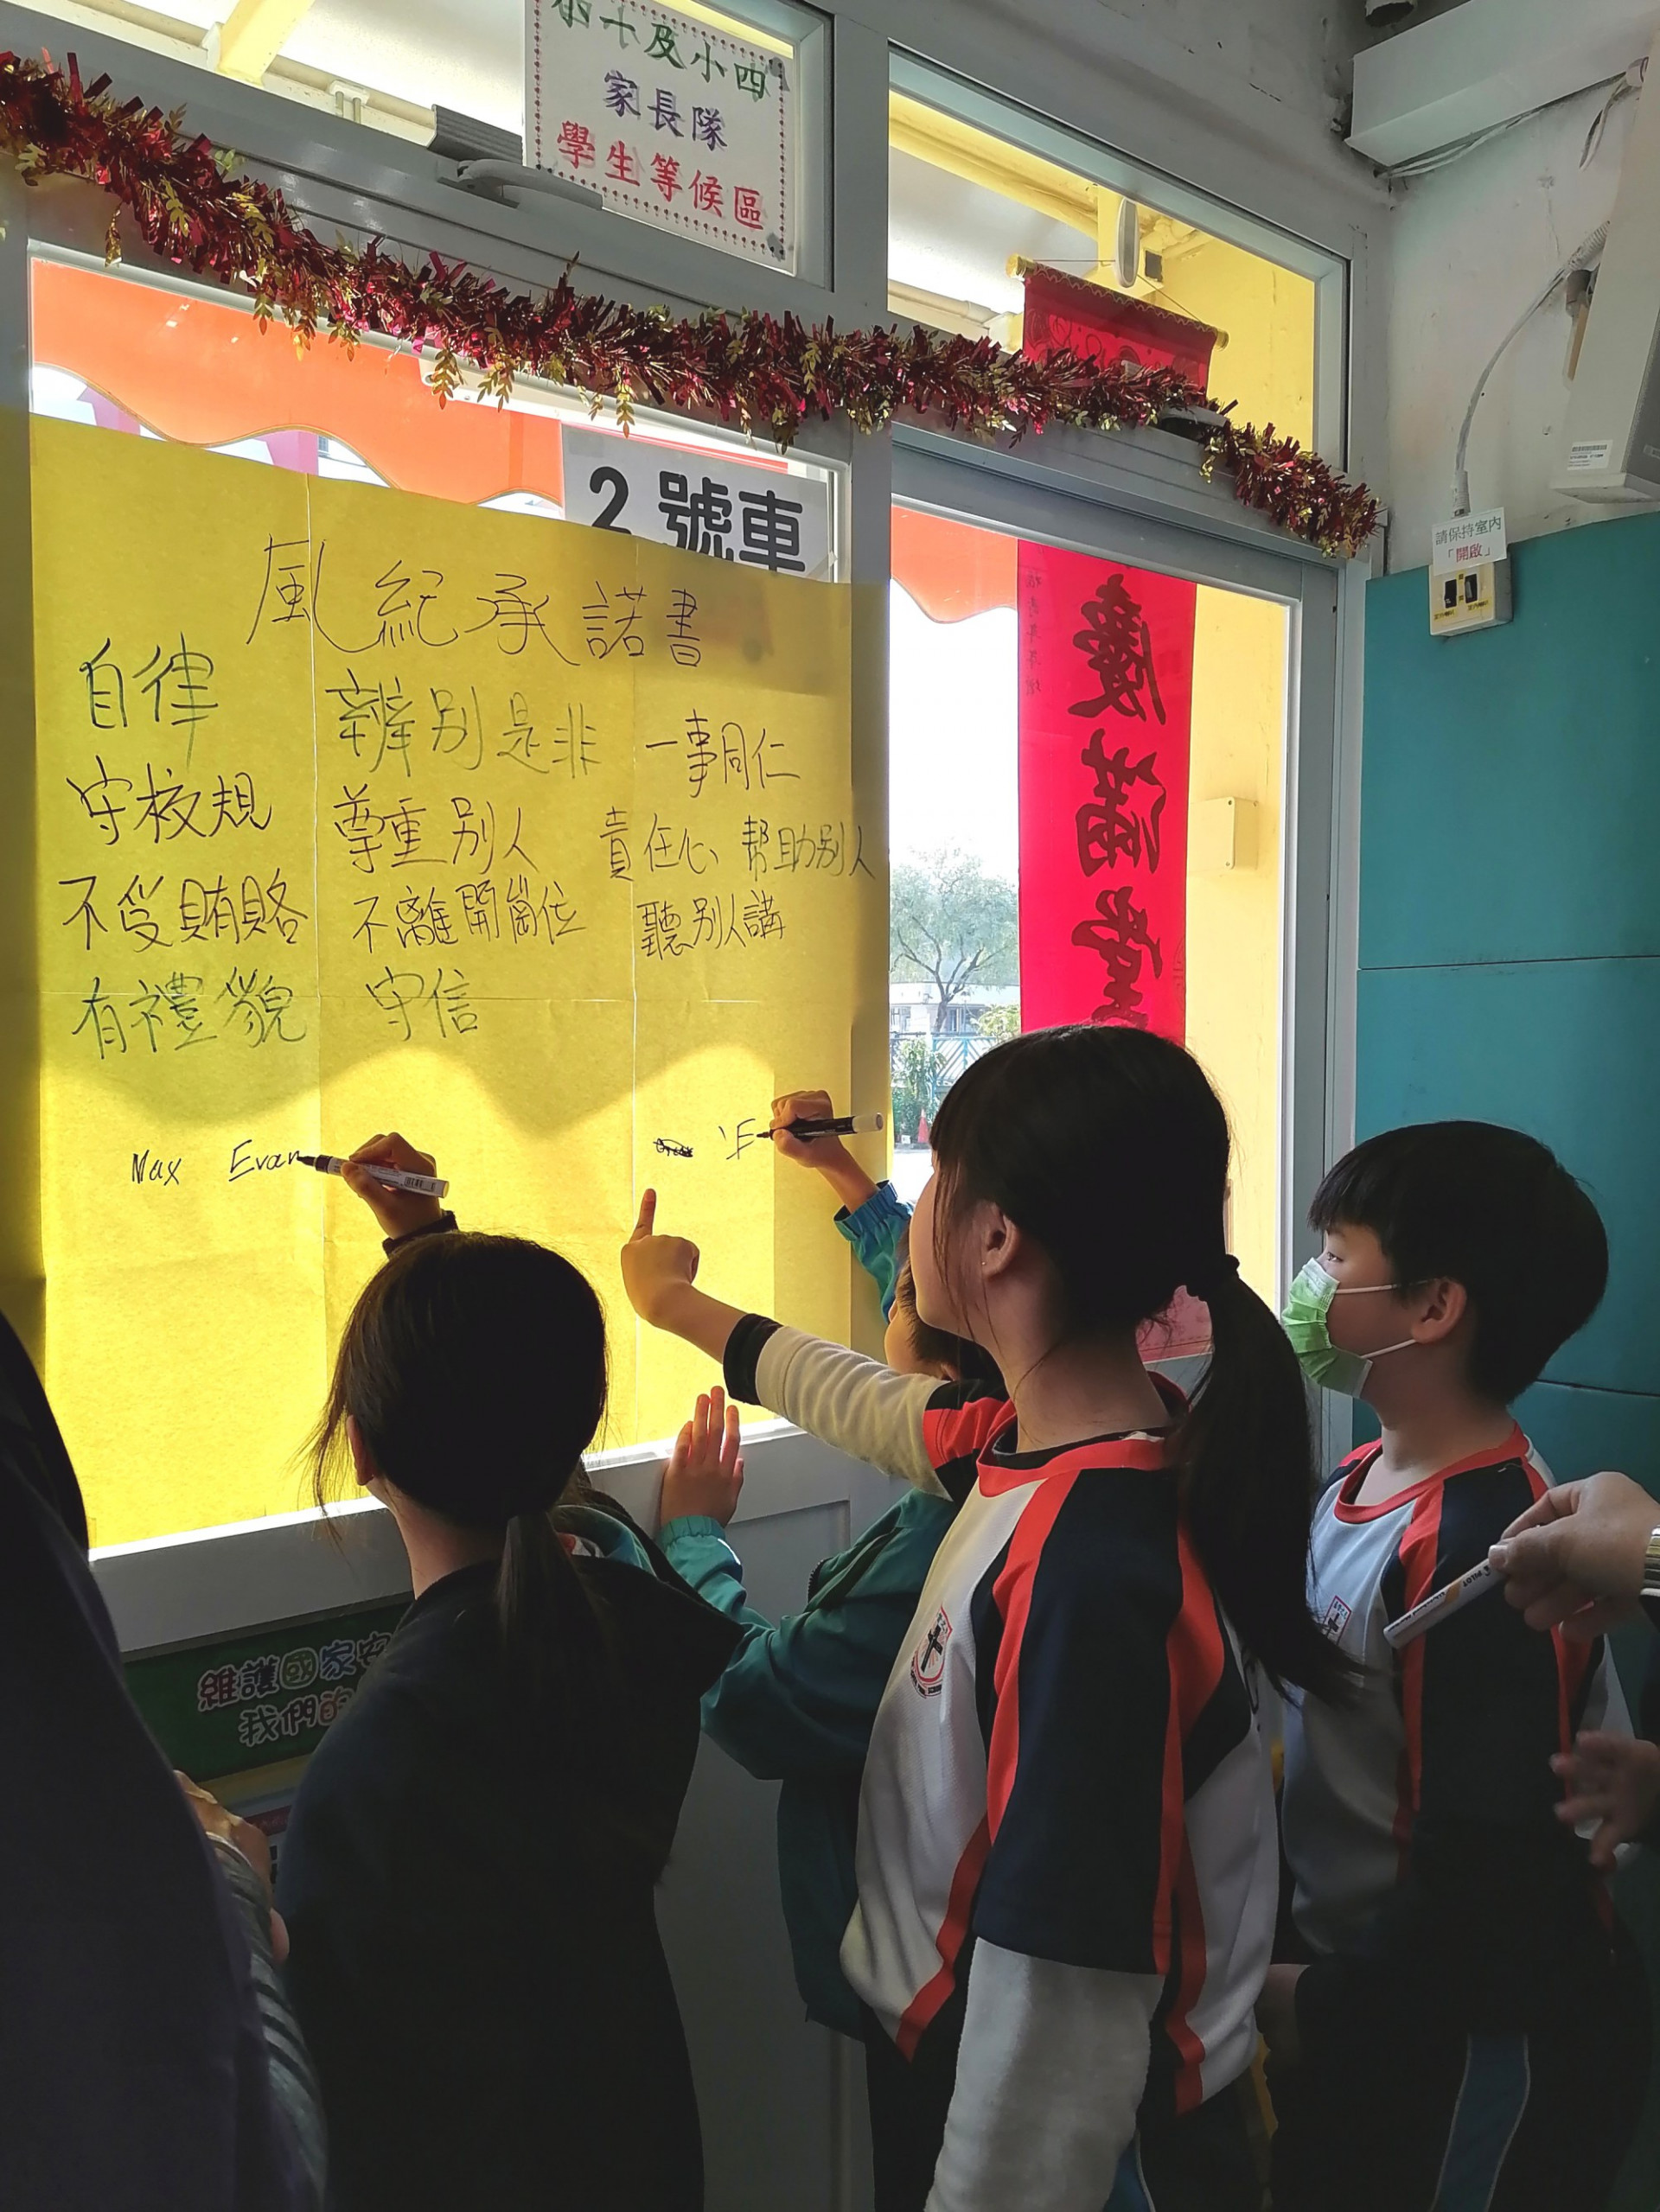 及小四
家長隊
學生等候區
2號車
風紀承諾書
自律
守校規
不受賄賂
有禮貌
辨別是非
尊重別人
不離開崗位
守信
一事同仁
責任心 幫助別人
聽別人講
Max Evan
慶滿堂
請保持室內
「開啟」
維護國家安
我們的
PILOT